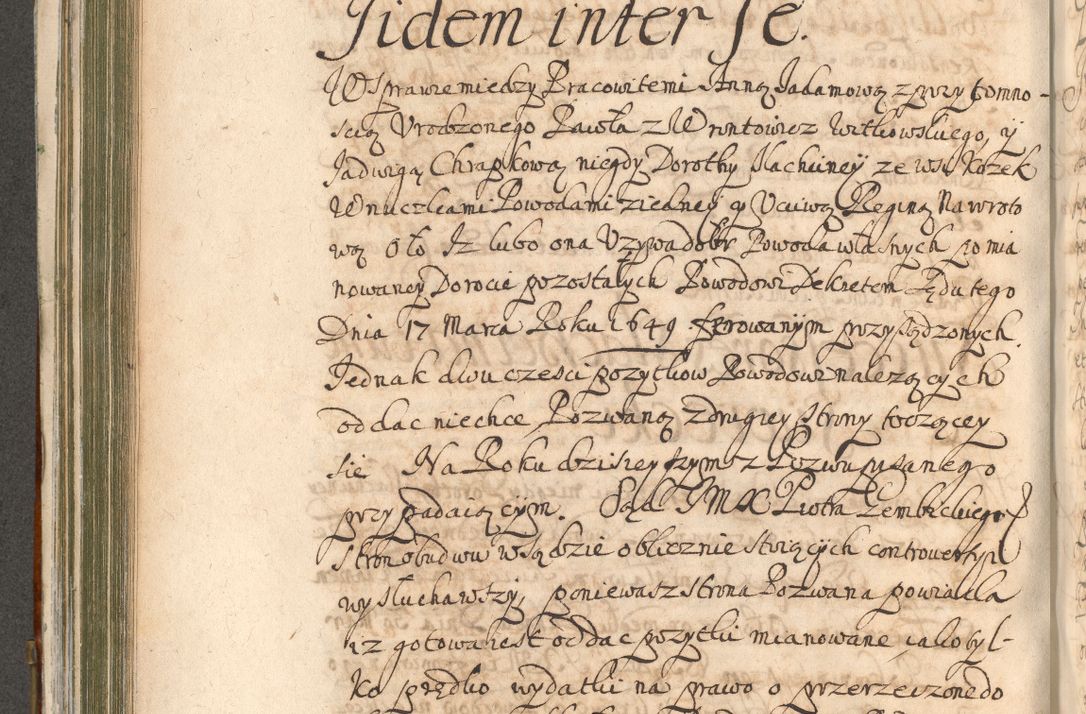 Iidem inter se.
W Sprawie miedzy Pracowitemi Anną Jadamową z przytomno-
scią Vrodzonego Pawła z Wrontowicz Witkowskiego, ÿ
Jadwigą Chrapkową niegdy Dorothy Slachciney ze wsi Kozek
Wnuczkami Powodami z iedney ą Vczciwą Reginą Nawroto
wą Oto Iz lubo ona Vzywa dobr Powoda własnych po mia
nowaney Dorocie pozostałych Powodowi Dekretem Sądu tego
Dnia 17 Marca Roku 1649 ferowanÿm przysądzonych.
Jednak dwu czesci pozytkow Powodowi nalezących
oddac niechce Pozwaną z drugiey strony toczącey
się Na Roku dzisieyszym z Pozwu pisanego
przypadaiącym. Sąd JMX Piotra Gembickiego
Stron obudwu w Sądzie oblicznie stoiących controversyi
wysłuchawszy, poniewasz strona Pozwana powiada
iz gotowa iest oddac pozytki mianowane ialobyl-
ko prędko wydatki na prawo o przerzeczone do